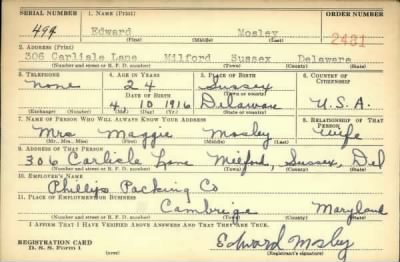 SERIAL NUMBER 1. NAME (Print) ORDER NUMBER
494 Edward Mosley 2431
(First) (Middle) (Last)
2. ADDRESS (Print)
306 Carlisle Lane Milford Sussex Delaware
(Number and street or R. F. D. number) (Town) (County) (State)
3. TELEPHONE 4. AGE IN YEARS 5. PLACE OF BIRTH 6. COUNTRY OF CITIZENSHIP
None 24 Sussex
DATE OF BIRTH (Town or county)
4 10 1916 Delaware U.S.A.
(Exchange) (Number) (Mo.) (Day) (Yr.) (State or country)
7. NAME OF PERSON WHO WILL ALWAYS KNOW YOUR ADDRESS 8. RELATIONSHIP OF THAT PERSON
Mrs Maggie Mosley Wife
(Mr., Mrs., Miss) (First) (Middle) (Last)
9. ADDRESS OF THAT PERSON
306 Carlisle Lane Milford, Sussex, Del
(Number and street or R. F. D. number) (Town) (County) (State)
10. EMPLOYER'S NAME
Phillips Packing Co
11. PLACE OF EMPLOYMENT OR BUSINESS
Cambreige Maryland
(Number and street or R. F. D. number) (Town) (County) (State)
I AFFIRM THAT I HAVE VERIFIED ABOVE ANSWERS AND THAT THEY ARE TRUE.
REGISTRATION CARD
D. S. S. Form 1 Edward Mosley
(Registrant's signature)